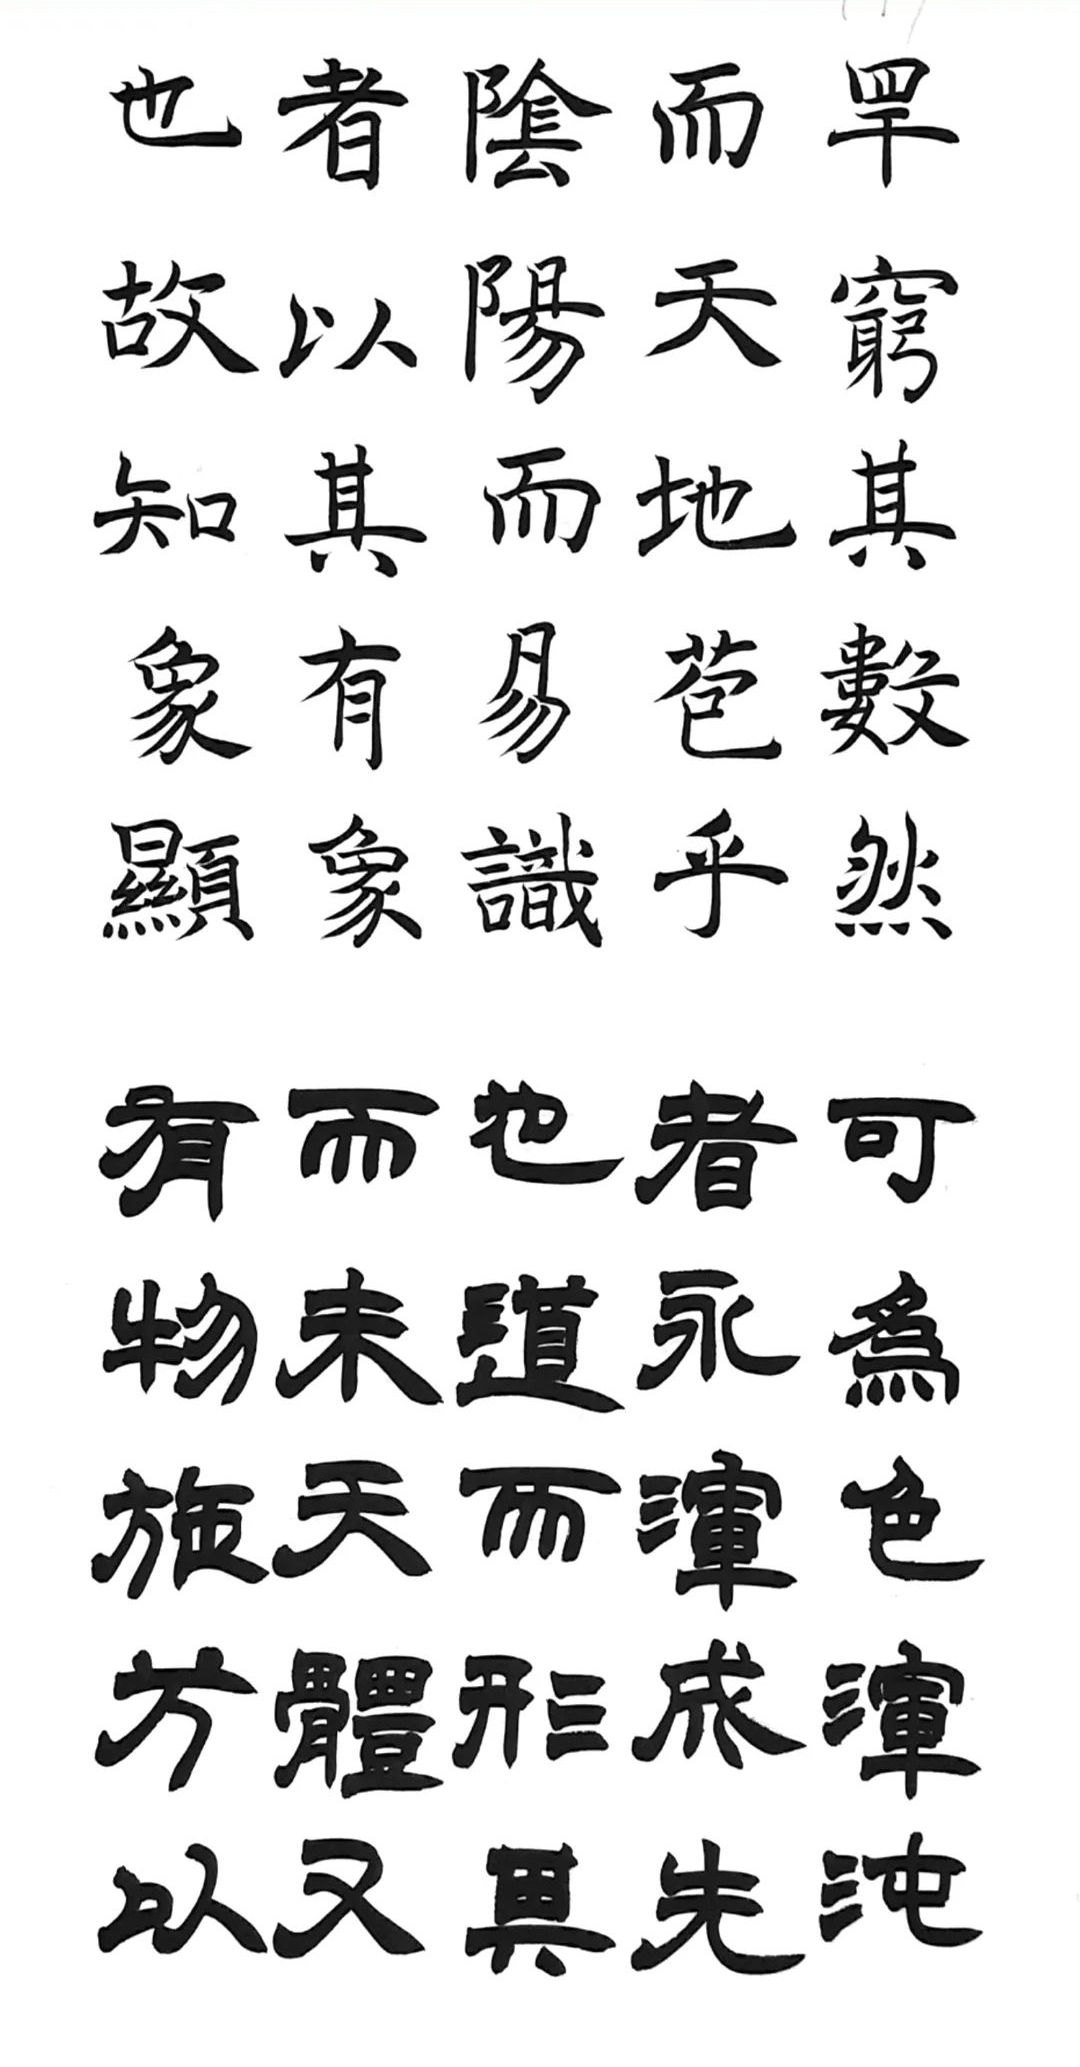 罕窮其數然
而天地苞乎
陰陽而易識
者以其有象
也故知象顯
可為色渾沌
者永渾成先
也道而形其
而未天體又
有物施方以